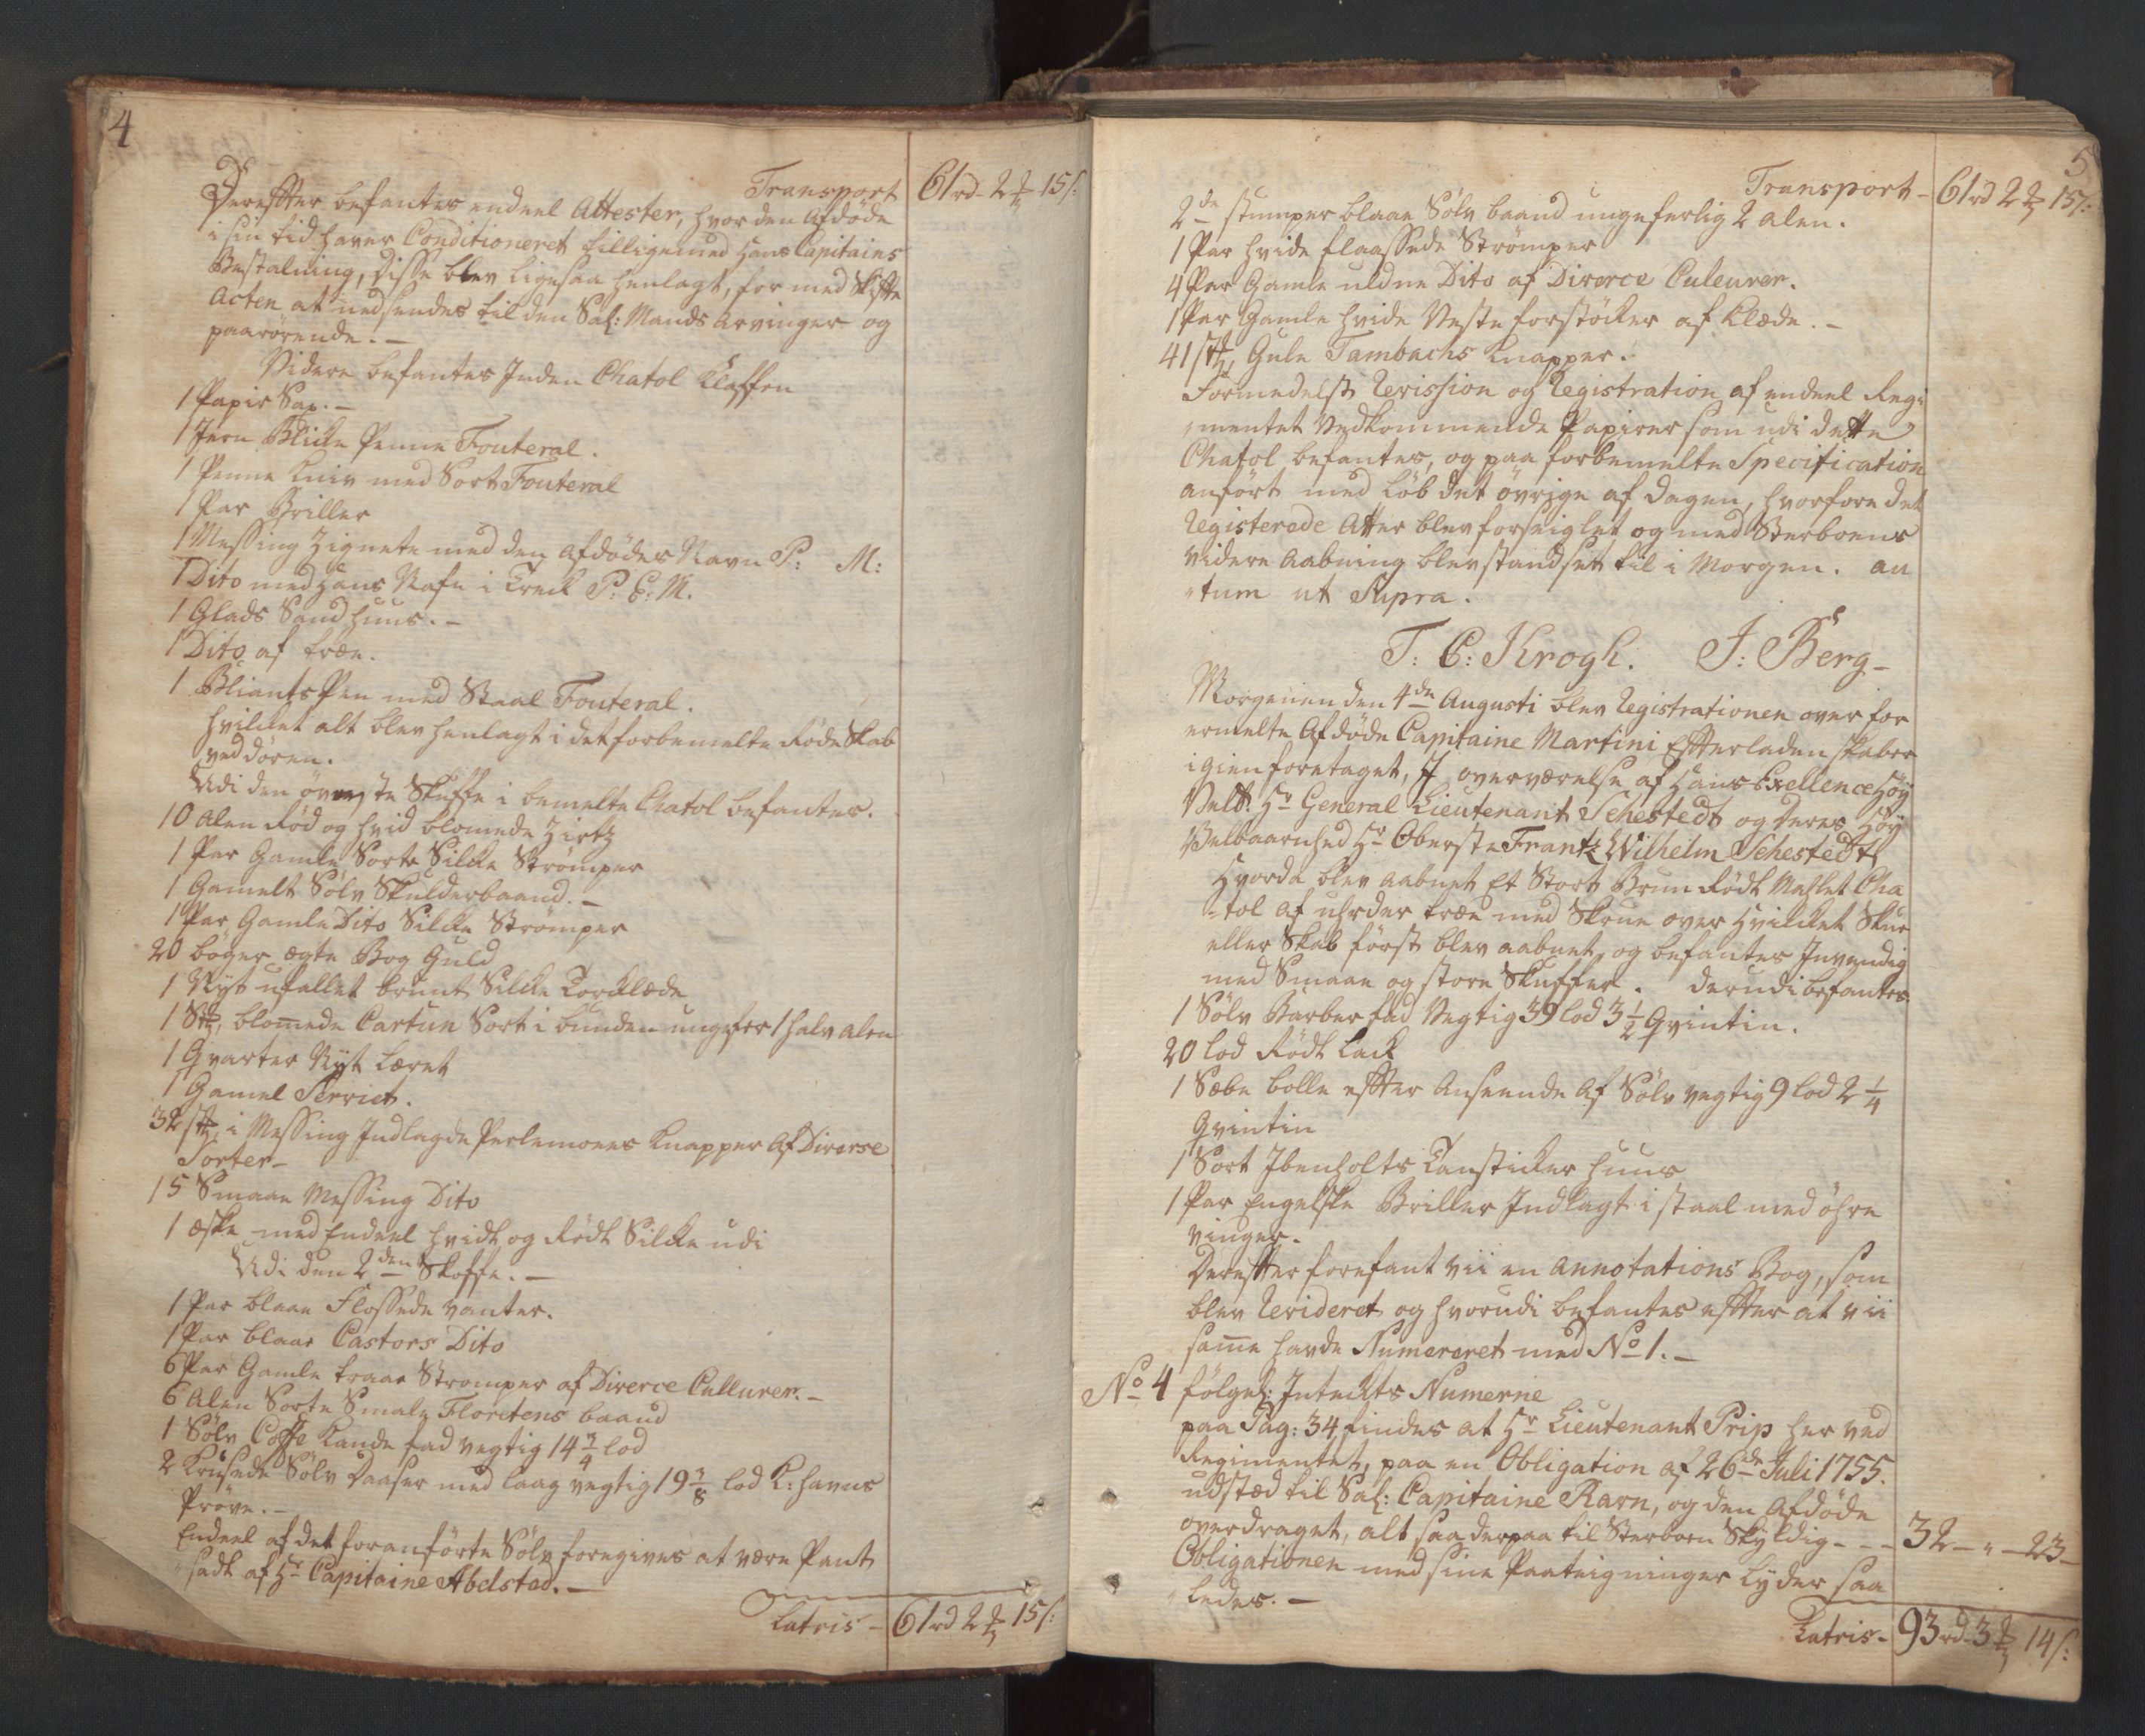 4
Transport 61 rd 2 ℔ 15 s:
Derefter befantes endeel Attester, hvor den Afdöde
i sin tid haver Conditioneret tilligemed Hans Capitains
Bestalning, disse blev ligesaa henlagt, for med Skifte
Acten at nedsendes til den Sal: Mands Arvinger og
paarörende. –
Videre befantes Inden Chatol Klaffen
1 Papir Sax. –
1 Jern Blicke Penne Fouteral.
1 Penne Kniv med Sort Fouteral
1 Par Briller
1 Messing Zignete med den Afdödes Navn P: M:
1 Dito med Hans Nafn i Treck P: E: M.
1 Glads Sandhuus. –
1 Dito af træe.
1 Bliants Pen med Staal Fouteral.
hvilcket alt blev henlagt i det forbemelte Röde Skab
ved dören.
Udi den överste Skuffe i bemelte Chatol befantes.
10 Alen Röd og hvid blomede Zirtz
1 Par Gamle Sorte Silcke Strömper
1 Gamelt Sölv Skulderbaand. –
1 Par Gamle Dito Silcke Strömper
20 böger ægte Bog Guld
1 Nyt ufallet brunt Silcke Torcklæde
1 St: blomede Cartun Sort i bunden ungefer 1 halv alen
1 Qvarter Nyt Læret
1 Gamel Serviet.
32 st: i Messing Indlagde Perlemoers Knapper Af Diverse
Sorter –
15 Smaae Messing Dito
1 æske med Endeel hvidt og Rödt Silcke udi
Udi den 2den Skoffe. –
1 Par blaae Flossede vanter.
1 Par blaae Castors Dito
6 Par Gamle traae Strömper af Diverce Cullurer. –
6 Alen Sorte Smale Floretens baand
1 Sölv Coffe Kande fad vegtig 14 3/4 lod
2 Krusede Sölv Daaser med laag vegtig 19 3/8 lod K:havns
Pröve. –
Endeel af det foranförte Sölv foregives at være Pant
sadt af Hr Capitaine Abelsted. –
Latris – 61 rd 2 ℔ 15 s:
5
Transport – 61 rd 2 ℔ 15 s:
2de stumper blaae Sölv baand ungeferlig 2 alen.
1 Par hvide flaassede Strömper
4 Par Gamle uldne Dito af Diverce Culeurer.
1 Par Gamle hvide Veste forstöcker af Klæde. –
41 st: Gule Tambachs Knapper.
Formedelst Revission og Registration af endeel Regi
mentet Vedkommende Papirer som udi dette
Chatol befantes, og paa forbemelte Specification
anfört med löb det övrige af dagen, hvorfore det
Registerede Atter blev forseiglet og med Sterboens
videre Aabning blev standset til i Morgen. Ac
tum ut Supra.
T: C: Krogh. J: Berg –
Morgenen den 4de Augusti blev Registrationen over for
ermelte Afdöde Capitaine Martini Efterladenskaber
igien foretaget, I overværelse af Hans Exellence Höy
Velb: Hr General Lieutenant Schestedt og Deres Höy
Velbaarnhed Hr Oberste Frantz Wilhelm Schestedt
Hvorda blev aabnet Et Stort Brun Rödt Mahlet Cha
tol af uhrder træe med Skrue over Hvilcket Skue
eller Skab först blev aabnet, og befantes Invendig
med Smaae og store Skuffer. derudi befantes
1 Sölv Barber fad Vegtig 39 lod 3 1/2 Qvintin.
20 lod Rödt lack
1 Sæbe bolle efter Anseende Af Sölv vegtig 9 lod 2 1/4
Qvintin
1 Sort Ibenholts Tansticker huus
1 Par Engelske Briller Indlagt i staal med öhre
vinger.
Derefter forefant vii en Annotations Bog, som
blev Revideret og hvorudi befantes efter at vii
same havde Numereret med No 1. –
No 4 fölgel: Inteckts Numerne
paa Pag: 34 findes at Hr Lieutenant Prip her ved
Regimentet, paa en Obligation af 26de Juli 1755.
udstæd til Sal: Capitaine Ravn, og den Afdöde
overdraget, alt saa derpaa til Sterboen Skyldig – – – 32 – " – 23 –
Obligationen med sine Paateigninger lyder saa
ledes. –
Latris – 93 rd 3 ℔ 14 s: